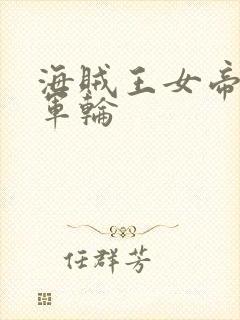 海賊王女帝
軍輪
任群芳